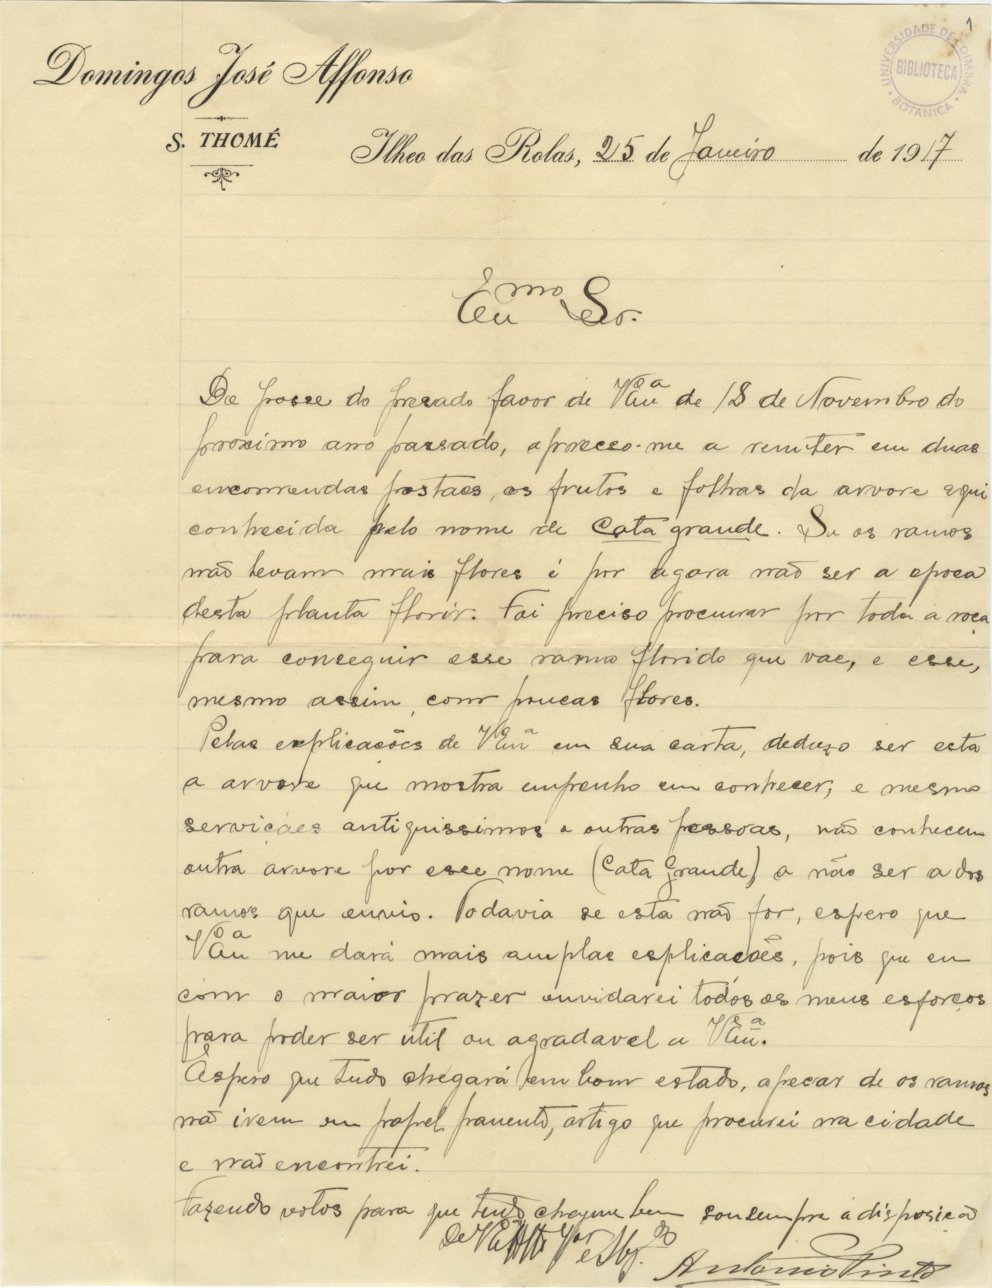 1
UNIVERSIDADE DE COIMBRA
BIBLIOTECA
BOTANICA
Domingos José Affonso
S. THOMÉ
Ilheo das Rolas, 25 de Janeiro de 1917
Exmo Snr.
De posse do presado favor de V Exª de 18 de Novembro do
proximo ano passado, apresso-me a remeter em duas
encomendas postaes, os frutos e folhas da arvore aqui
conhecida pelo nome de Cata grande. Se os ramos
não levam mais flores é por agora não ser a epoca
desta planta florir. Foi preciso procurar por toda a roça
para conseguir esse ramo florido que vae, e esse,
mesmo assim, com poucas flores.
Pelas explicações de V Exª em sua carta, deduzo ser esta
a arvore que mostra empenho em conhecer, e mesmo
serviçaes antiquissimos e outras pessoas, não conhecem
outra arvore por esse nome (Cata Grande) a não ser a dos
ramos que envio. Todavia se esta não for, espero que
V Exª me dará mais amplas esplicações, pois que eu
com o maior prazer envidarei todos os meus esforços
para poder ser util ou agradavel a V Exª.
Espero que tudo chegará em bom estado, apesar de os ramos
não irem em papel pardento, artigo que procurei na cidade
e não encontrei.
Fazendo votos para que tudo chegue bem sou sempre á disposição
De V Exª Attº Vor e Obgdo
Antonio Pinto